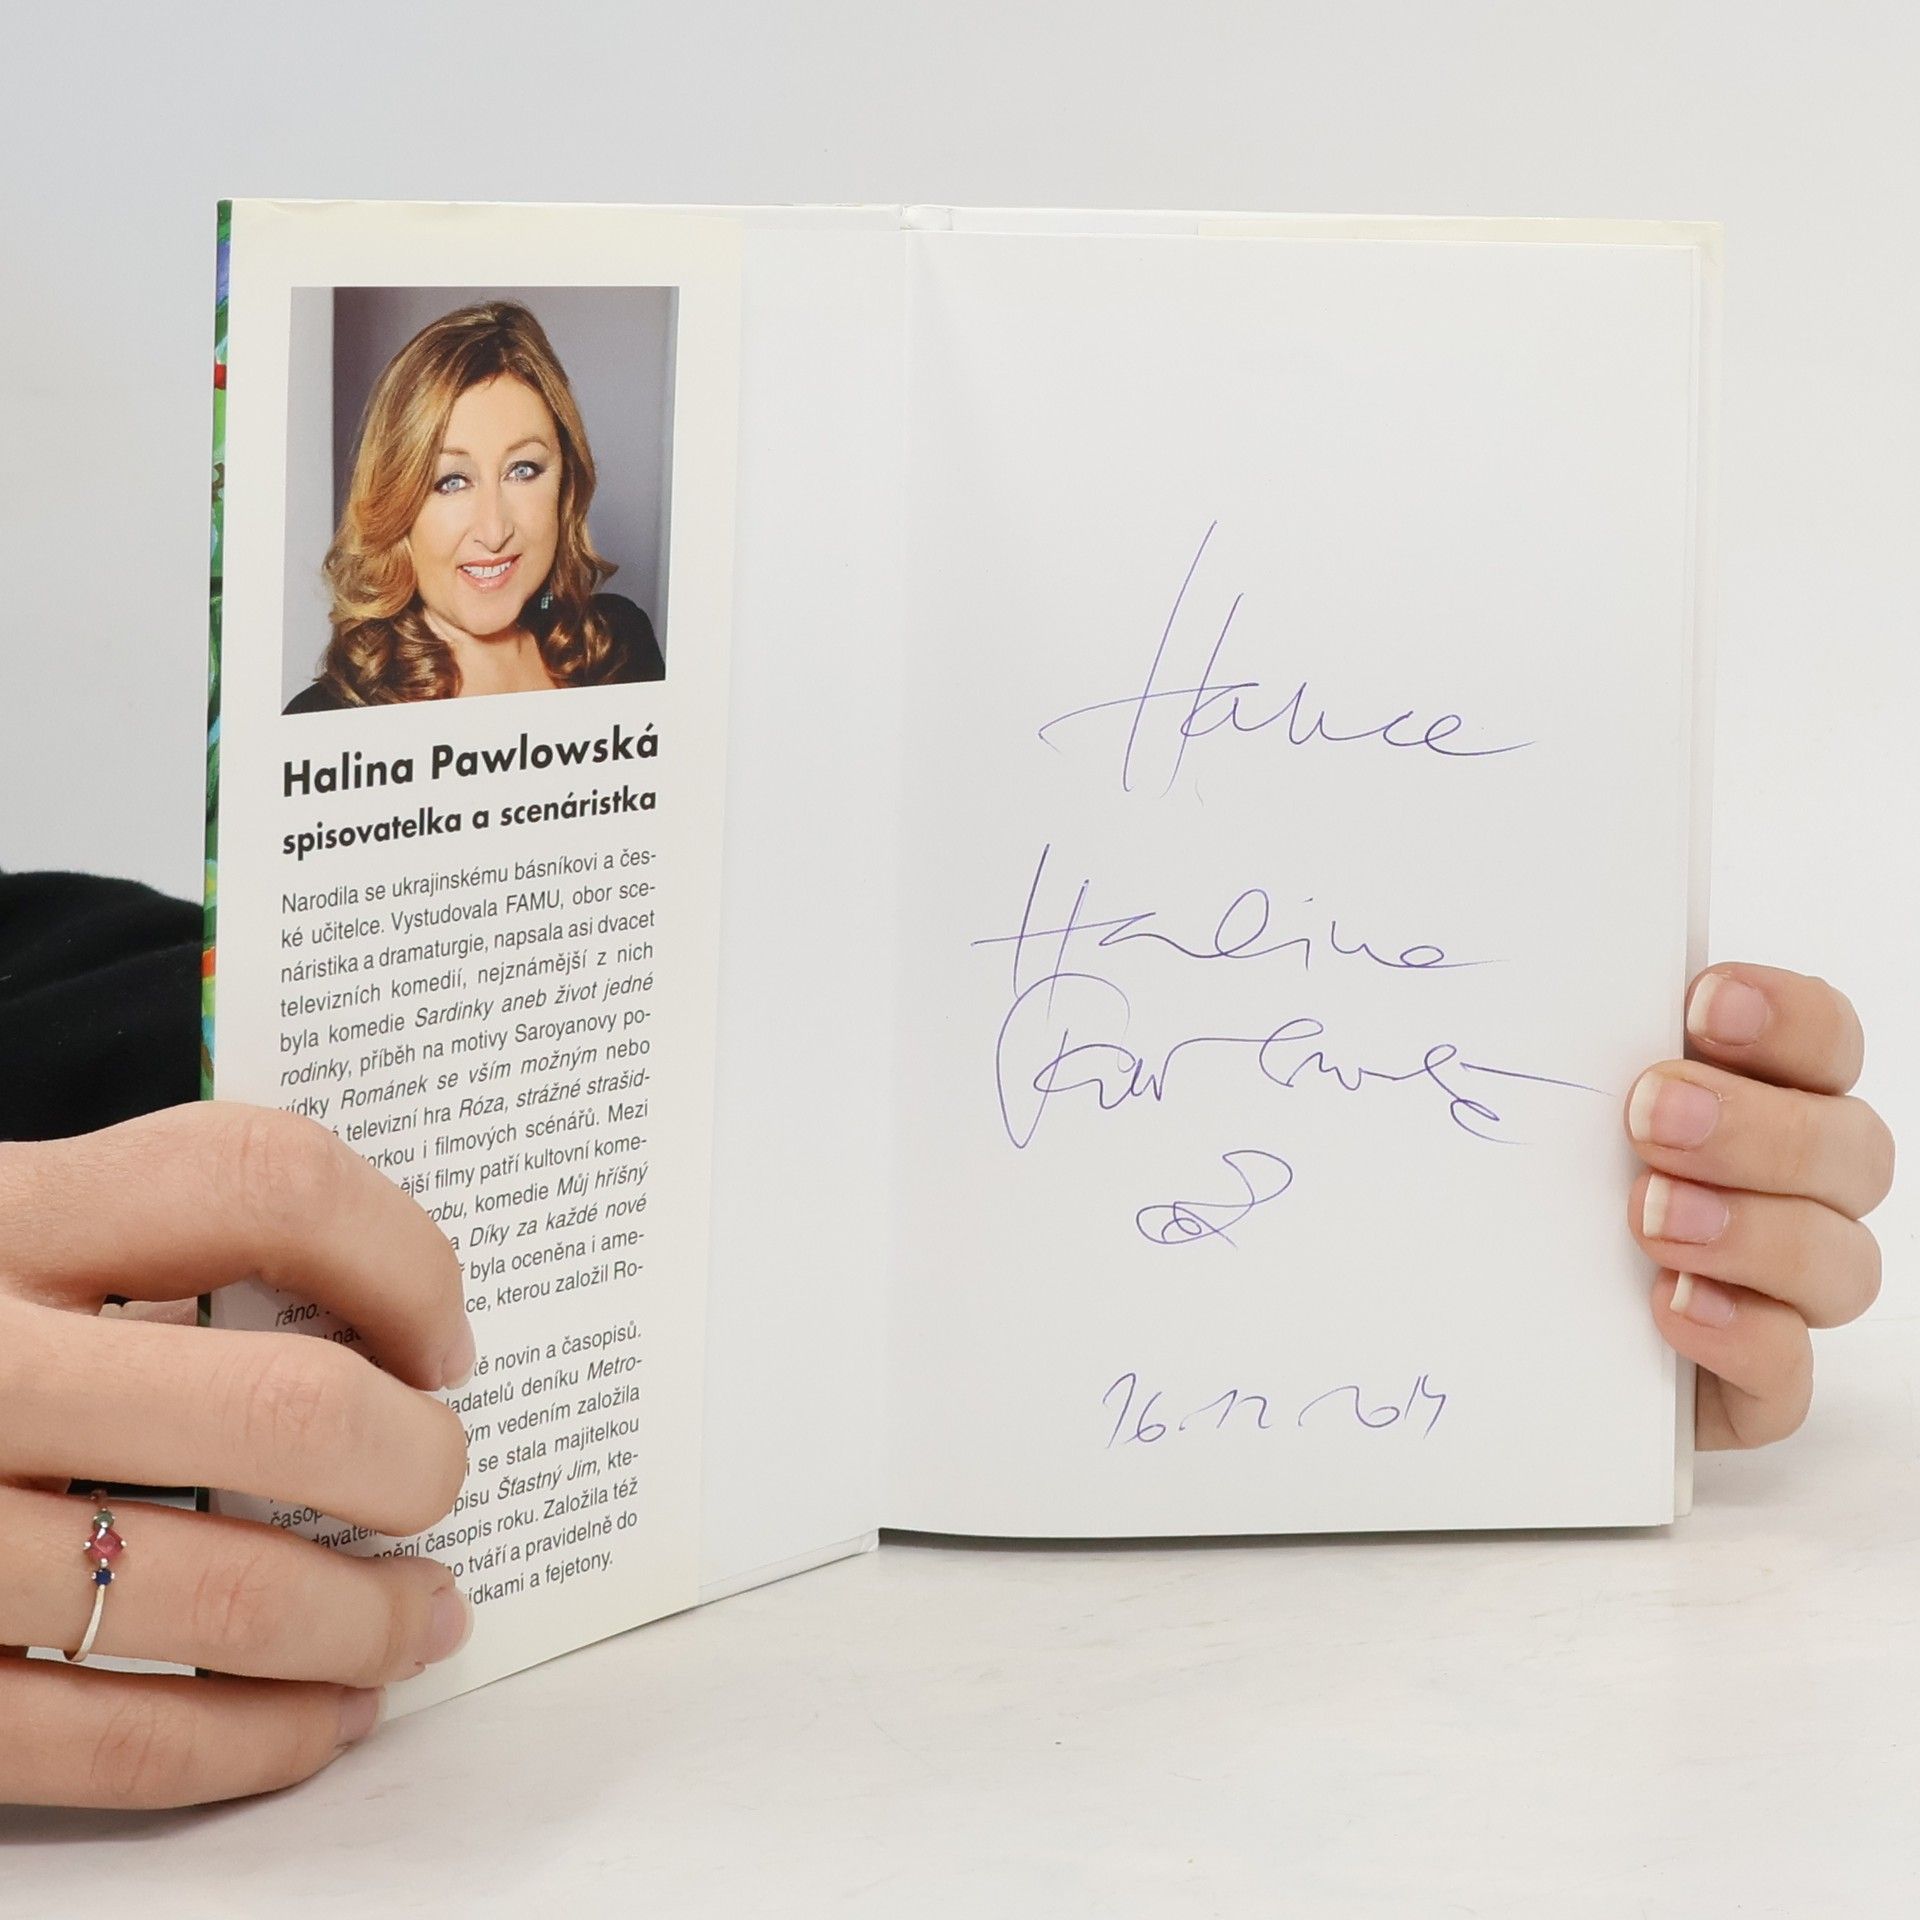 Halina Pawlowská
spisovatelka a scenáristka
Narodila se ukrajinskému básníkovi a čes-
ké učitelce. Vystudovala FAMU, obor sce-
náristika a dramaturgie, napsala asi dvacet
televizních komedií, nejznámější z nich
byla komedie Sardinky aneb život jedné
rodinky, příběh na motivy Saroyanovy po-
vídky Románek se vším možným nebo
televizní hra Róza, strážné strašid-
i filmových scénářů. Mezi
filmy patří kultovní kome-
komedie Můj hříšný
a Díky za každé nové
ráno. byla oceněna i ame-
kterou založil Ro-
novin a časopisů.
deníku Metro-
vedením založila
se stala majitelkou
Šťastný Jim, kte-
časopis roku. Založila též
tváří a pravidelně do
a fejetony.
Hance
Halina
Pawlowská
16.12.2014